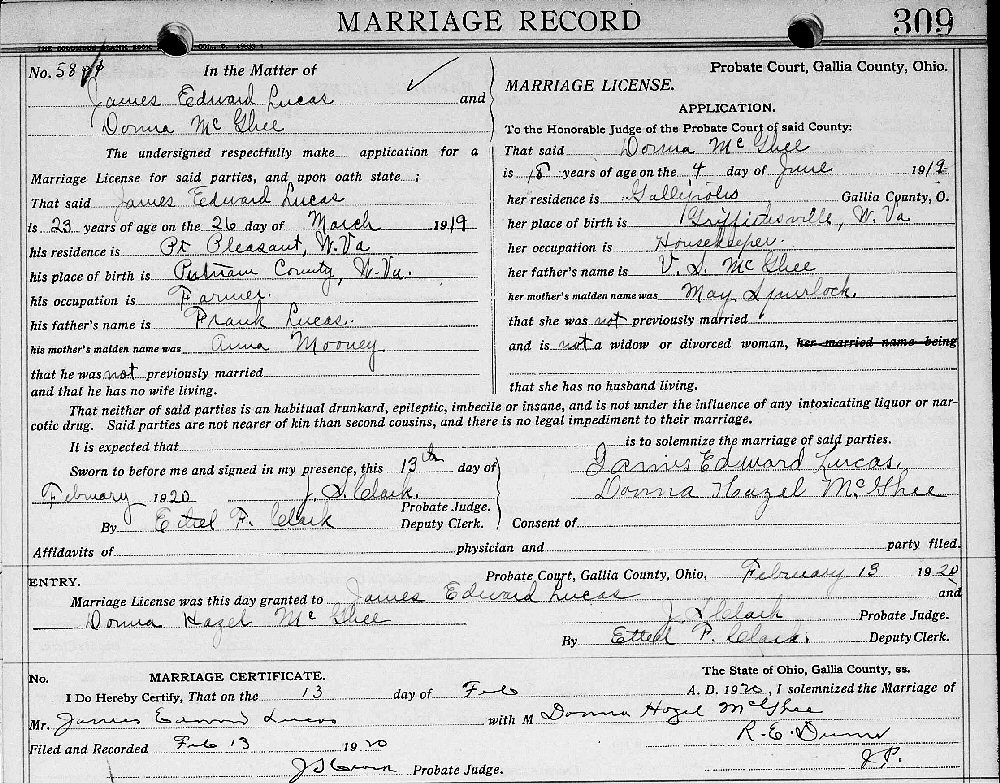 MARRIAGE RECORD
309
No. 58
In the Matter of
James Edward Lucas and
Donna Mc Ghee
The undersigned respectfully make application for a
Marriage License for said parties, and upon oath state ;
That said James Edward Lucas
is 23 years of age on the 26 day of March 1919
his residence is Pt Pleasant, W.Va
his place of birth is Putnam County, W.Va.
his occupation is Farmer.
his father's name is Frank Lucas.
his mother's maiden name was Anna Mooney
that he was not previously married
and that he has no wife living.
Probate Court, Gallia County, Ohio.
MARRIAGE LICENSE.
APPLICATION.
To the Honorable Judge of the Probate Court of said County:
That said Donna Mc Ghee
is 18 years of age on the 4 day of June 1919
her residence is Gallipolis Gallia County, O.
her place of birth is Griffithsville, W. Va
her occupation is Housekeeper.
her father's name is V. S. Mc Ghee
her mother's maiden name was May Spurlock.
that she was not previously married
and is not a widow or divorced woman, her married name being
that she has no husband living.
That neither of said parties is an habitual drunkard, epileptic, imbecile or insane, and is not under the influence of any intoxicating liquor or nar-
cotic drug. Said parties are not nearer of kin than second cousins, and there is no legal impediment to their marriage.
It is expected that is to solemnize the marriage of said parties.
Sworn to before me and signed in my presence, this 13th day of
February 1920 J. S. Clark.
Probate Judge.
By Ethel F. Clark Deputy Clerk.
James Edward Lucas.
Donna Hazel McGhee
Consent of
Affidavits of physician and party filed.
ENTRY.
Probate Court, Gallia County, Ohio, February 13 1920
Marriage License was this day granted to James Edward Lucas and
Donna Hazel Mc Ghee
J. S. Clark Probate Judge.
By Ethel F. Clark. Deputy Clerk.
No. MARRIAGE CERTIFICATE.
The State of Ohio, Gallia County, ss.
I Do Hereby Certify, That on the 13 day of Feb A. D. 1920, I solemnized the Marriage of
Mr. James Edward Lucas with M Donna Hazel McGhee
R. E. Dunn
J.P.
Filed and Recorded Feb 13 1920
Probate Judge.